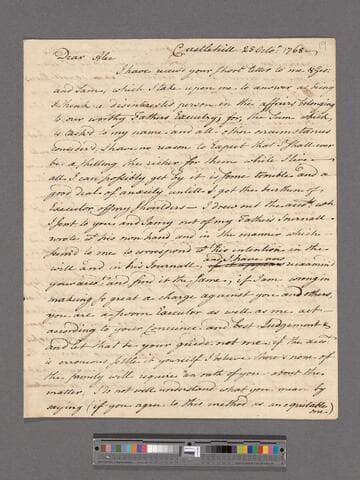 Castlehill 25 Octo.r 1768
Dear Alex
I have receiv'd your short letter to me & Geo:
and Samy, which I take upon me to answer as being
I think a disinterested person in the affairs belonging
to our worthy Fathers Executry; for, the Sum which
is tack'd to my name and all other circumstances
consider'd, I have no reason to expect that I shall ever
be a shilling the richer for them while I live –
all I can possibly get by it is some trouble and a
good deal of anxiety untill I get the burthen of
Executor off my shoulders – I drew out the acco.ts wch
I sent to you and Samy out of my Fathers Journall
wrote with his own hand and in the manner which
seem'd to me to correspond to his intention in the
will and in his Journall, and I have now reexamin'd
your acco.t and find it the same, if I am wrong in
making so great a charge against you and others,
you are a sworn Executor as well as me act
according to your Concience and best Judgement
and let that be your guide not me, if the acco.t
is erroneous, settle it yourself I believe none of
the family will require an oath of you about the
matter. I do not well understand what you mean by
saying (if you agree to this method as an equitable
one)